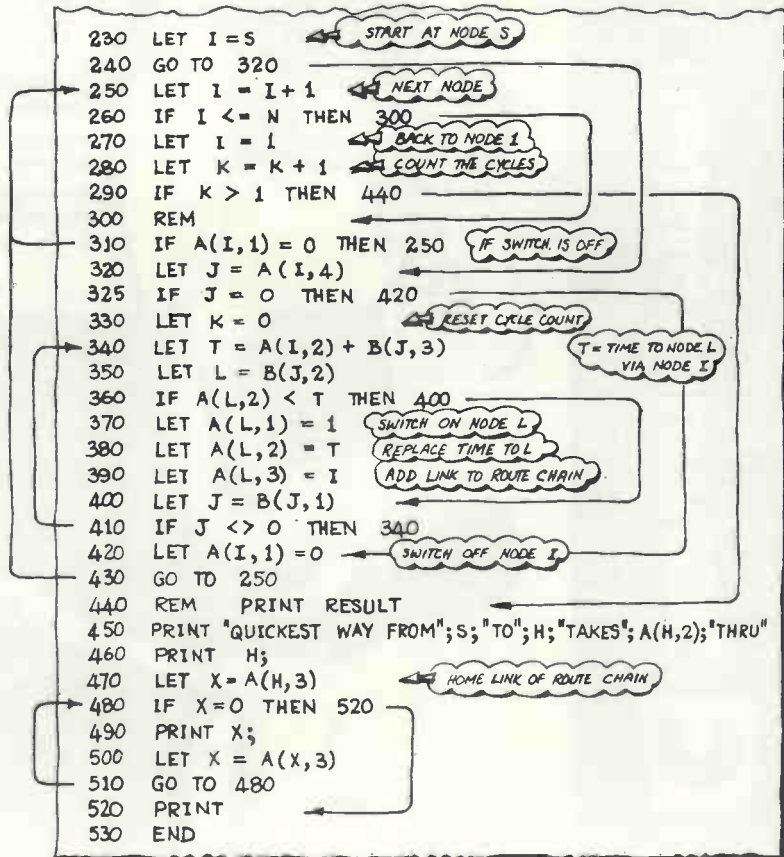 230 LET I = S START AT NODE S
240 GO TO 320
250 LET I = I + 1 NEXT NODE
260 IF I <= N THEN 300
270 LET I = 1 BACK TO NODE 1
280 LET K = K + 1 COUNT THE CYCLES
290 IF K > 1 THEN 440
300 REM
310 IF A(I,1) = 0 THEN 250 IF SWITCH IS OFF
320 LET J = A(I,4)
325 IF J = 0 THEN 420
330 LET K = 0 RESET CYCLE COUNT
340 LET T = A(I,2) + B(J,3) T = TIME TO NODE L
350 LET L = B(J,2) VIA NODE I
360 IF A(L,2) < T THEN 400
370 LET A(L,1) = 1 SWITCH ON NODE L
380 LET A(L,2) = T REPLACE TIME TO L
390 LET A(L,3) = I ADD LINK TO ROUTE CHAIN
400 LET J = B(J,1)
410 IF J <> 0 THEN 340
420 LET A(I,1) = 0 SWITCH OFF NODE I
430 GO TO 250
440 REM PRINT RESULT
450 PRINT "QUICKEST WAY FROM"; S; "TO"; H; "TAKES"; A(H,2); "THRU"
460 PRINT H;
470 LET X = A(H,3) HOME LINK OF ROUTE CHAIN
480 IF X = 0 THEN 520
490 PRINT X;
500 LET X = A(X,3)
510 GO TO 480
520 PRINT
530 END